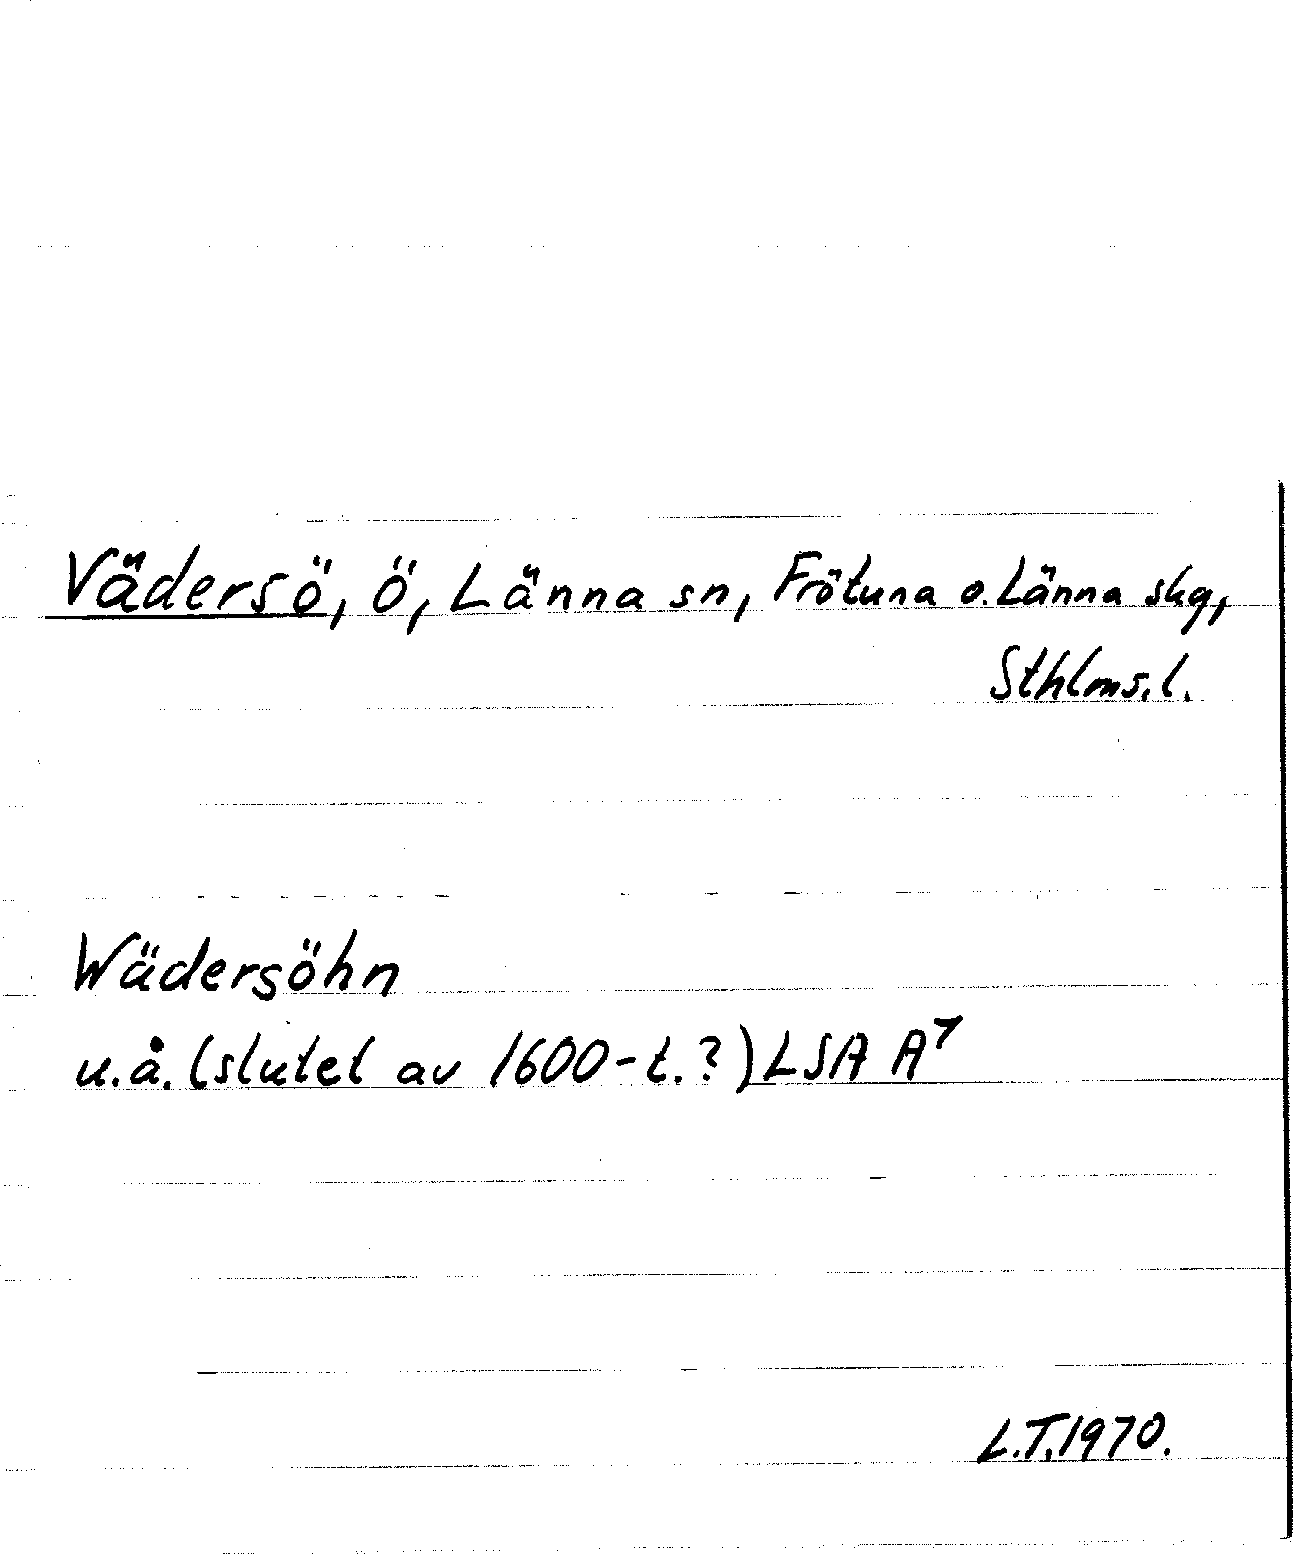 Vädersö, ö, Länna sn, Frötuna o. Länna skg,
Sthlms. l.
Wädersöhn
u.å. (slutet av 1600-t.?) LSA A⁷
L.T. 1970.